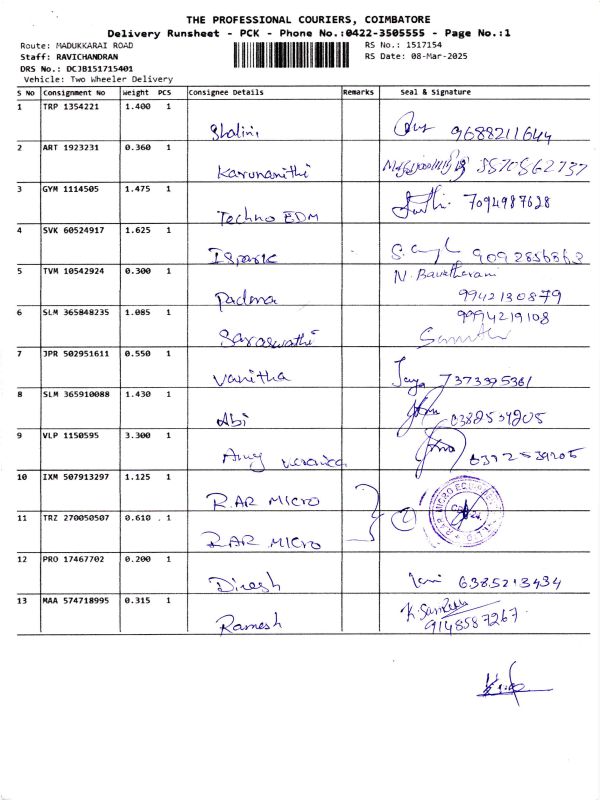 THE PROFESSIONAL COURIERS, COIMBATORE
Delivery Runsheet - PCK - Phone No.:0422-3505555 - Page No.:1
Route: MADUKKARAI ROAD RS No.: 1517154
Staff: RAVICHANDRAN RS Date: 08-Mar-2025
DRS No.: DCJB151715401
Vehicle: Two Wheeler Delivery
S No Consignment No Weight PCS Consignee Details Remarks Seal & Signature
1 TRP 1354221 1.400 1
Shalini 9688211644
2 ART 1923231 0.360 1
Karunanithi
3 GYM 1114505 1.475 1
Techno EDM 7094987628
4 SVK 60524917 1.625 1
5 TVM 10542924 0.300 1
Padma 9942130879
6 SLM 365848235 1.085 1 9994219108
Saraswathi
7 JPR 502951611 0.550 1
Vanitha Jaya 7373395361
8 SLM 365910088 1.430 1
Abi
9 VLP 1150595 3.300 1
Amy veronica
10 IXM 507913297 1.125 1
R.AR MICRO
11 TRZ 270050507 0.610 . 1 2
R.AR MICRO
12 PRO 17467702 0.200 1
Dinesh 6385213434
13 MAA 574718995 0.315 1
Ramesh 9148587267